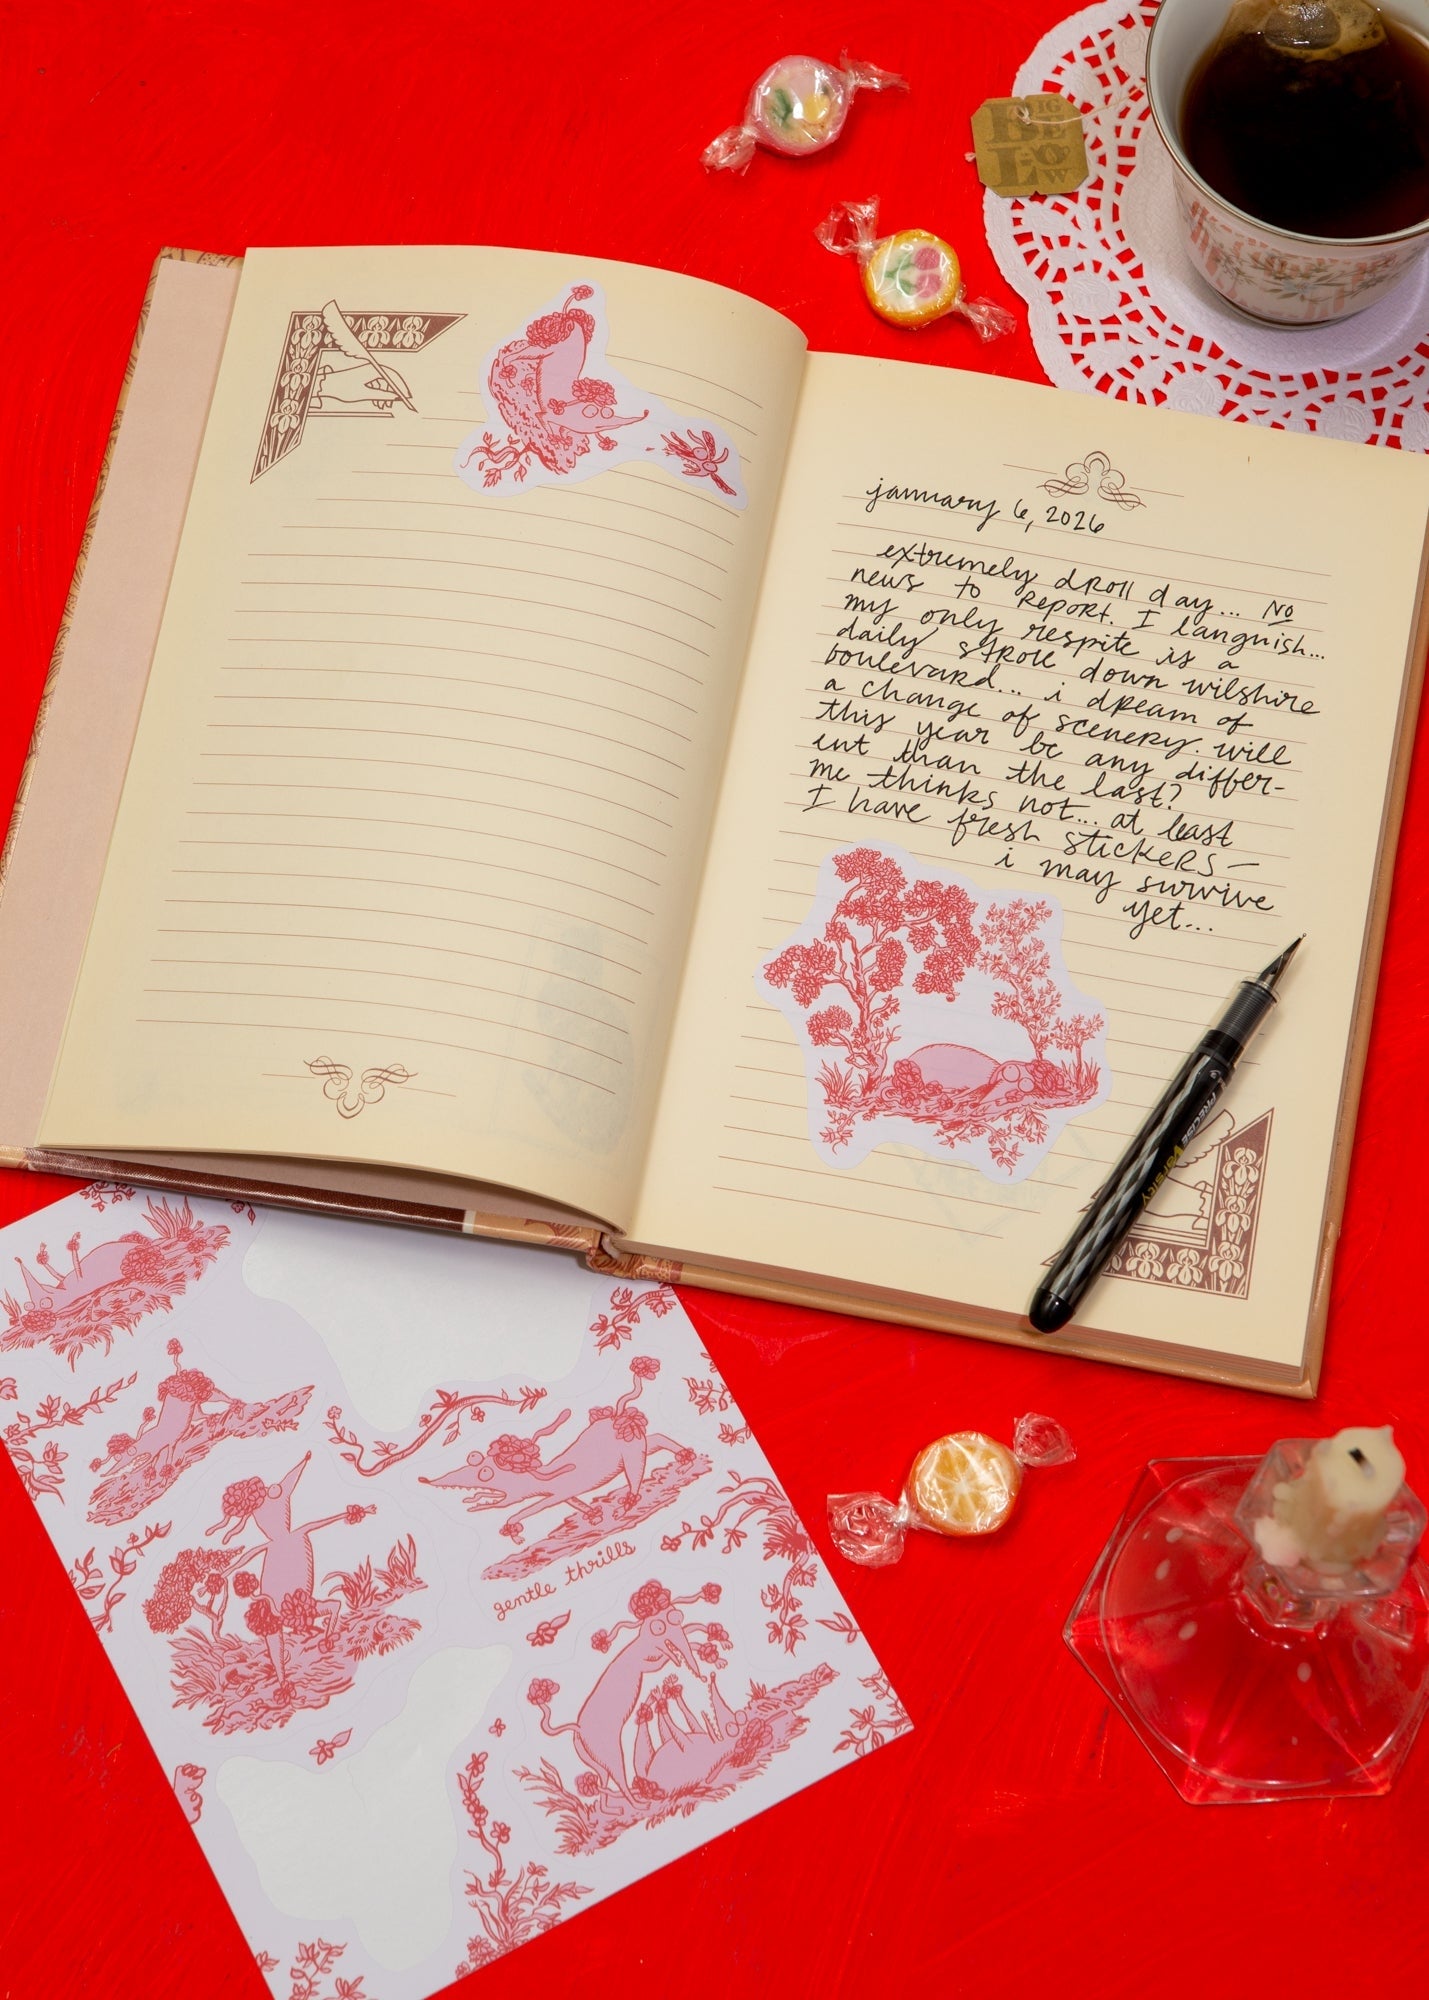 BIGELOW
january 6, 2026
extremely droll day... No
news to report. I languish...
my only respite is a
daily stroll down wilshire
boulevard... i dream of
a change of scenery. will
this year be any differ-
ent than the last?
me thinks not... at least
I have fresh stickers —
i may survive
yet...
PRECISE Varsity
gentle thrills